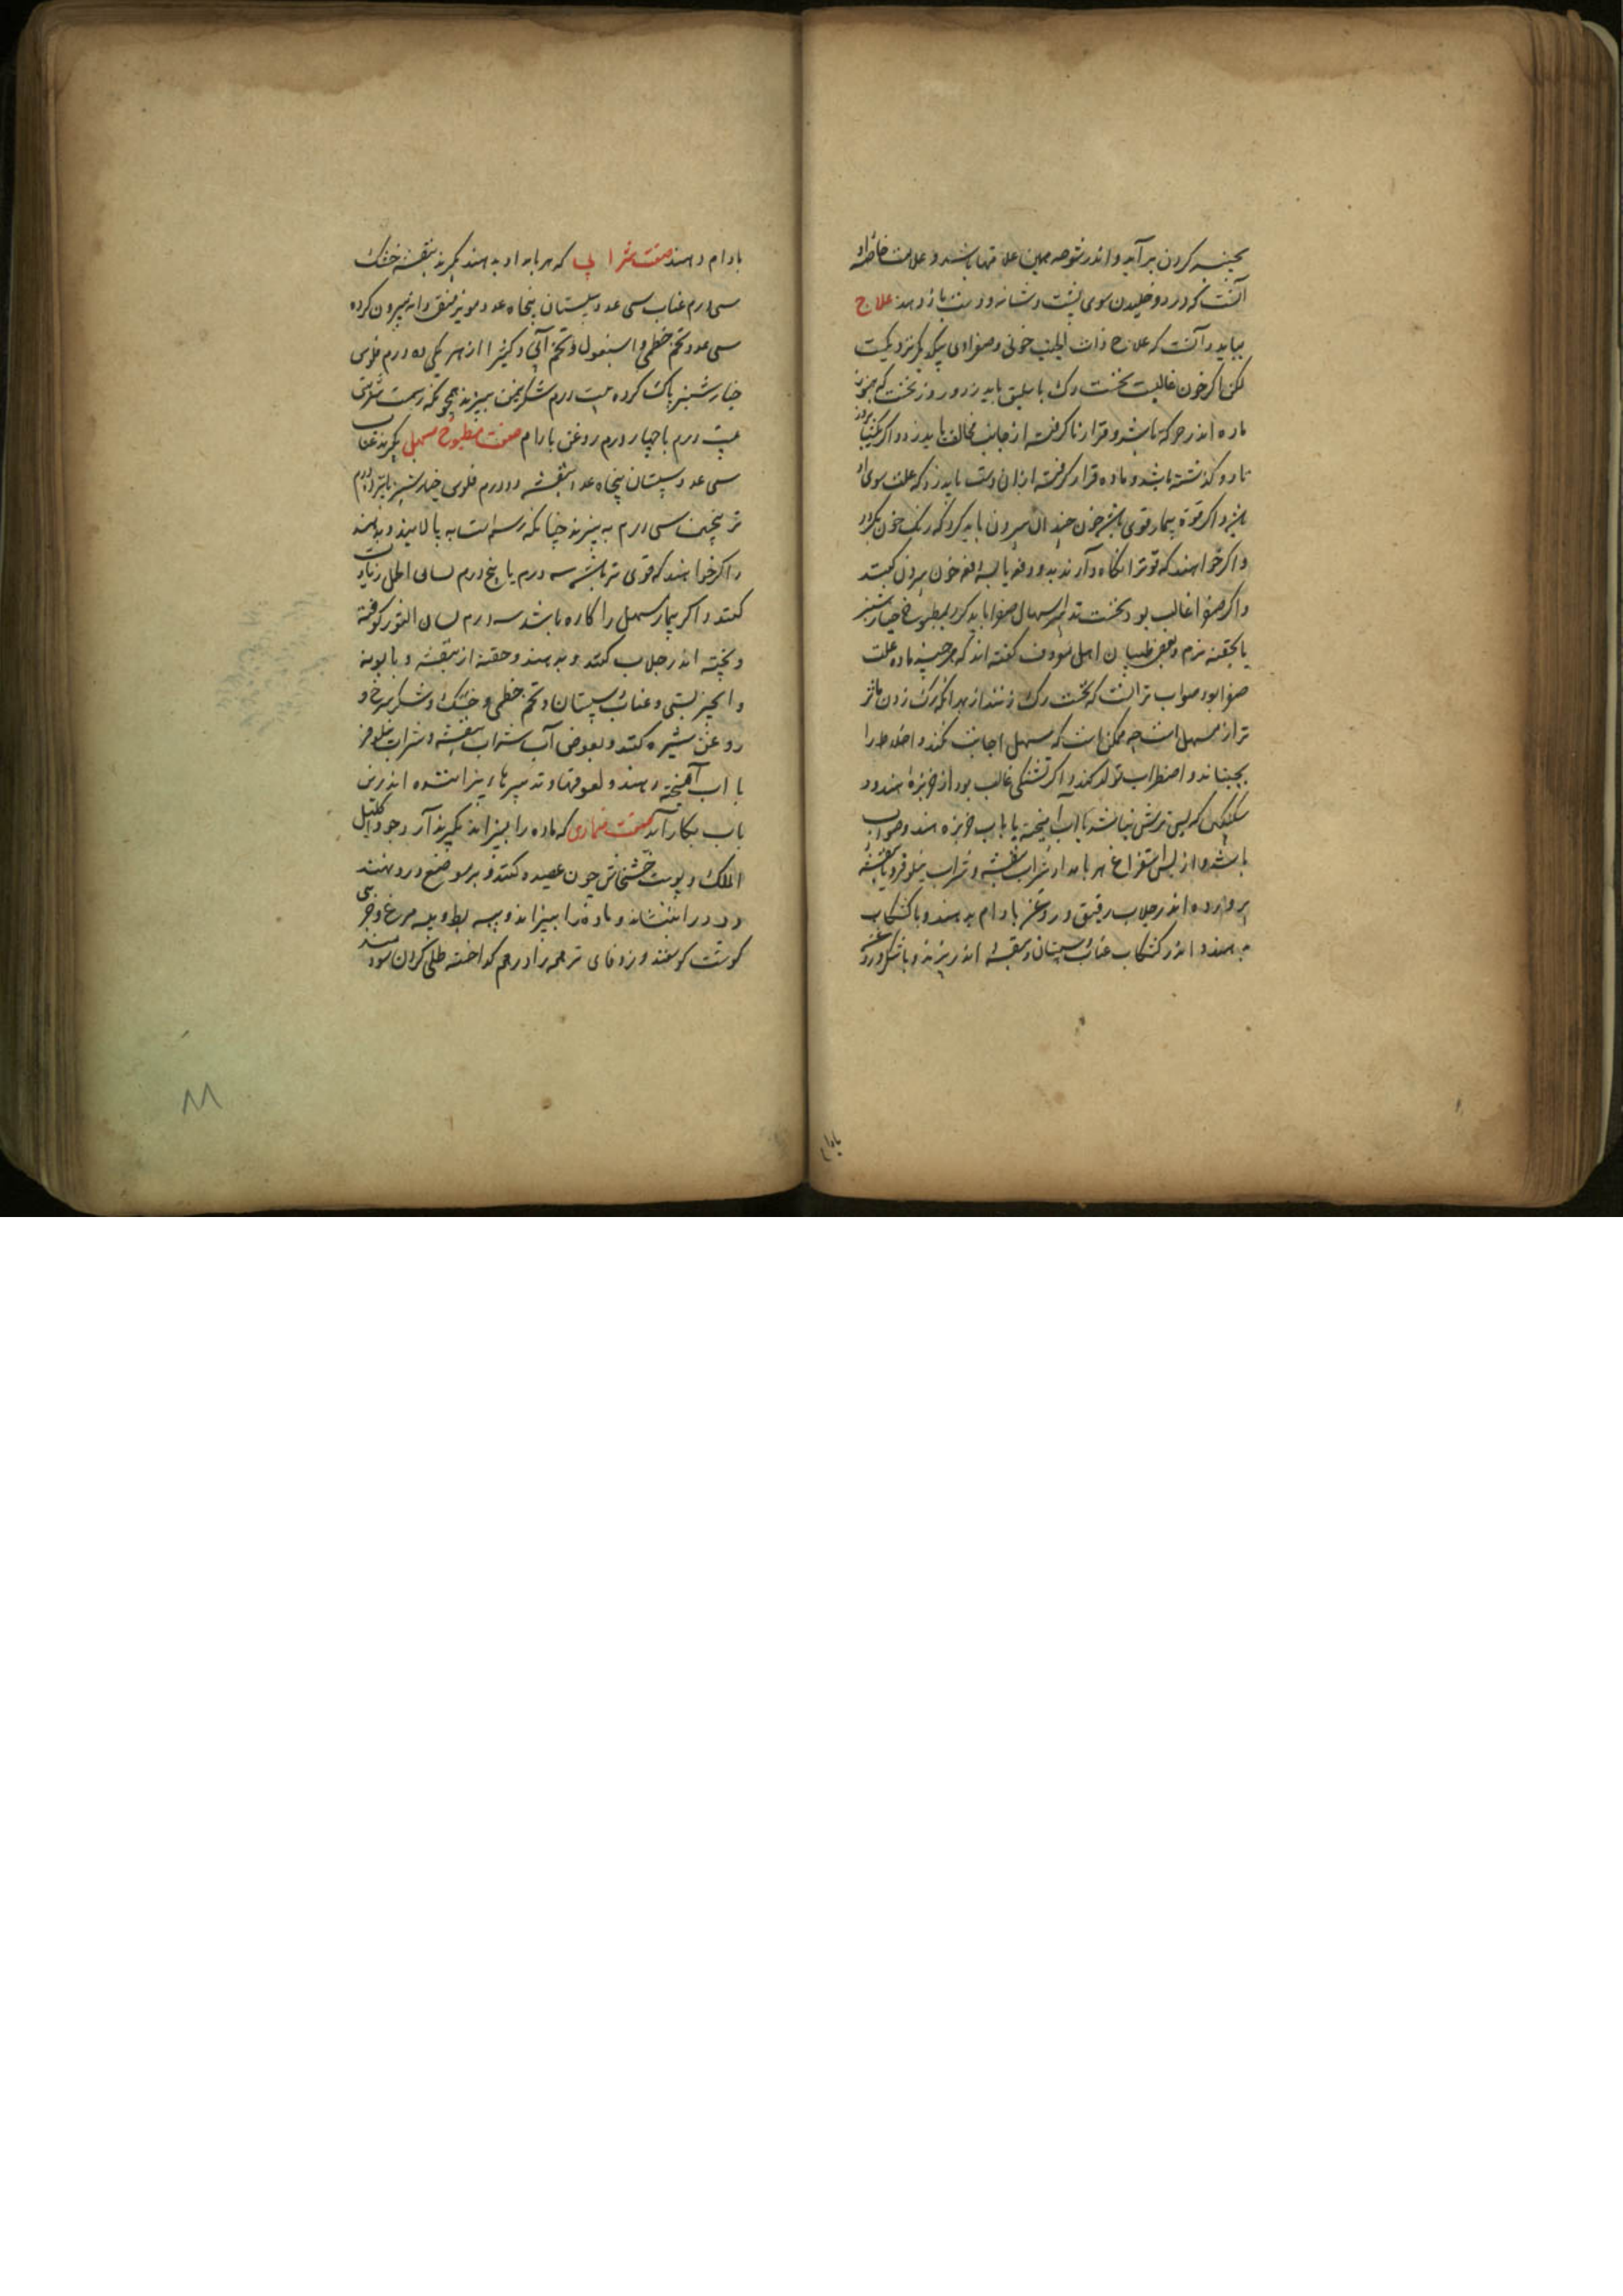 بجنبه کردن برآید و اندر شوصه همین علامتها باشد و علامت خاصه او
آنست که درد و خلیدن سوی پشت و شانه و دست باز دهد علاج
بباید دانست که علاج ذات الجنب خونی و صفراوی بیکدیگر نزدیکست
لکن اگر خون غالبست نخست رک باسلیق باید زد و روز نخست که هنوز
ماده اندر حرکة باشد و قرار نا گرفته از جانب مخالف باید زد و اگر
تا دو گذشته باشد و ماده قرار گرفته ازان دست باید زد که علت سوی او
باشد و اگر قوة بیمار قوی باشد خون چندان بیرون باید کرد که رنک خون بگردد
و اگر خواهند که قوترا نگاه دارند بدو دفعه یا بسه دفعه خون بیرون کنند
و اگر صفرا غالب بود نخست تدبیر اسهال صفرا باید کرد بمطبوخ خیارشنبر
یا بحقنه نرم و بعضی طبیبان اهل گفته اند که هر چند ماده علت
صفرا بود صواب تر آنست که نخست رک زنند از بهر آنکه رک زدن
تر از مسهل است چه ممکن است که مسهل اجابت نکند و اخلاط را
بجنباند و اضطراب تولد کند و اگر تشنگی غالب بود از خربزه هندو و
سکنکبین که بس ترش نباشد با آب آمیخته یا با آب خربزه هندو صواب
باشد و از پس استفراغ هر بامداد شراب بنفشه و شراب نیلوفر و یا بنفشه
پرورده اندر جلاب رقیق و روغن بادام بدهند و با کشکاب
بدهند و اندر کشکاب عناب و سپستان و بنفشه اندر پزند و با شکر و روغن
بادام
بادام دهند صفت شرابی که هر بامداد بدهند بگیرند بنفشه خشک
سی درم عناب سی عدد سپستان پنجاه عدد مویز منقی دانه بیرون کرده
سی عدد تخم خطمی و اسبغول و تخم آبی و کثیرا از هر یکی ده درم فلوس
خیارشنبر پاک کرده بیست درم شکر بپزند همچونکه رسمست شربتی
بیست درم با چهار درم روغن بادام صفت مطبوخ مسهل بگیرند عناب
سی عدد سپستان پنجاه عدد بنفشه ده درم فلوس خیارشنبر
ترنجبین سی درم بپزند چنانکه رسم است به پالایند و بدهند
و اگر خواهند که قوی تر باشد سه درم یا پنج درم لسان الحمل زیادت
کنند و اگر بیمار مسهل را کاره باشد سه درم لسان الثور کوفته
و بیخته اندر جلاب کنند و بدهند و حقنه از بنفشه و بابونه
و انجیر بستی و عناب و سپستان و تخم خطمی و خشک و شکر سرخ و
روغن شیره کنند و بعوض آب شراب بنفشه و شراب نیلوفر
با آب آمیخته دهند و لعوقها و تدبیرها دیگر اندرین
باب بکار آید صفت ضمادی که ماده را بپزاند بگیرند آرد جو و اکلیل
الملک و پوست خشخاش چون عصیده کنند و بر موضع درد نهند
درد را بنشاند و ماده را بپزاند و پیه بط و پیه مرغ و چربی
گوشت گوسفند و زوفای تر همه را درهم گداخته طلی کردن سود